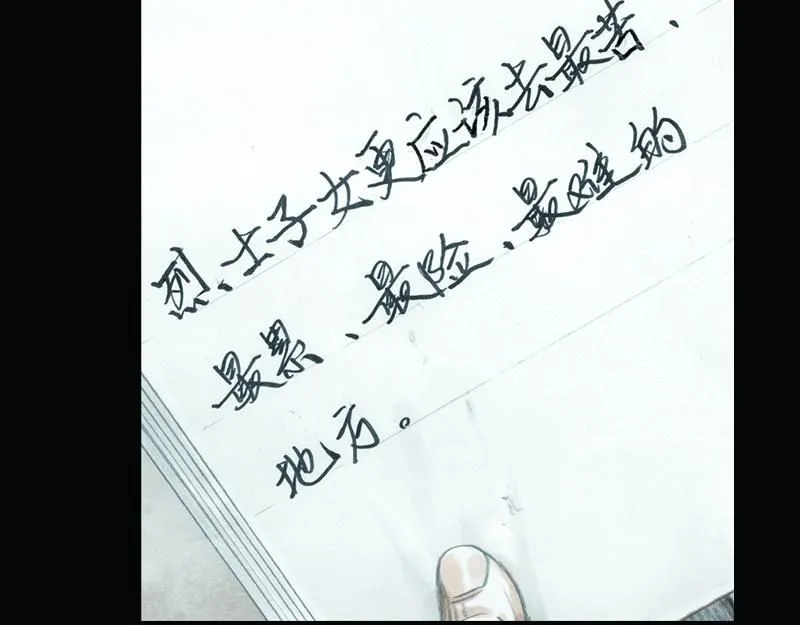 烈士子女更应该去最苦、
最累、最险、最难的
地方。